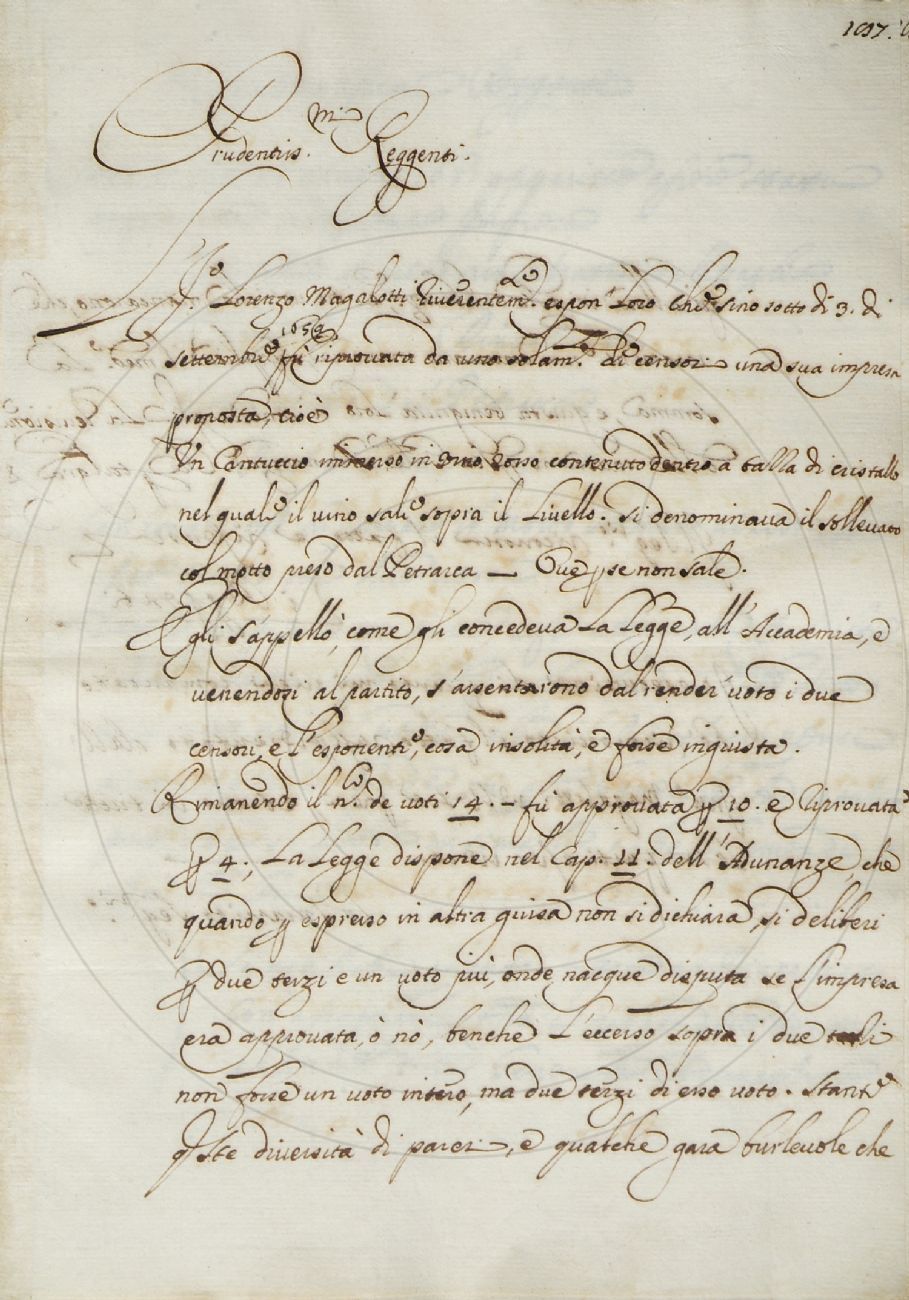 Prudentiss.mi Reggenti.
Lorenzo Magalotti riverentem.te espon Loro che sino sotto di 3. di
settembre 1659 fù riprovata da uno solam.te de censori una sua impresa
proposta, cioè
Un Cantuccio immerso in vino rosso contenuto dentro a balla di cristallo
nel quale il vino sale sopra il Livello. Si denominava il sollevato
col motto preso dal Petrarca — Ove p se non sale.
Egli s'appellò, come gli concedeva La Legge, all'Accademia, e
venendosi al partito, s'assentarono dal render voto i due
censori, e l'esponente, cosa insolita, e forse ingiusta.
Rimanendo il n.ro de voti 14. – fù approvata p 10. e riprovata
p 4., La Legge dispone nel Cap. 11. dell'Adunanze, che
quando p espresso in altra guisa non si dichiara, si deliberi
p due terzi e un voto più, onde nacque disputa se l'impresa
era approvata, ò nò, benche l'eccesso sopra i due
non fosse un voto intero, ma due terzi di esso voto. Stante
q.ste diversità di pareri, e qualche gara burlevole che